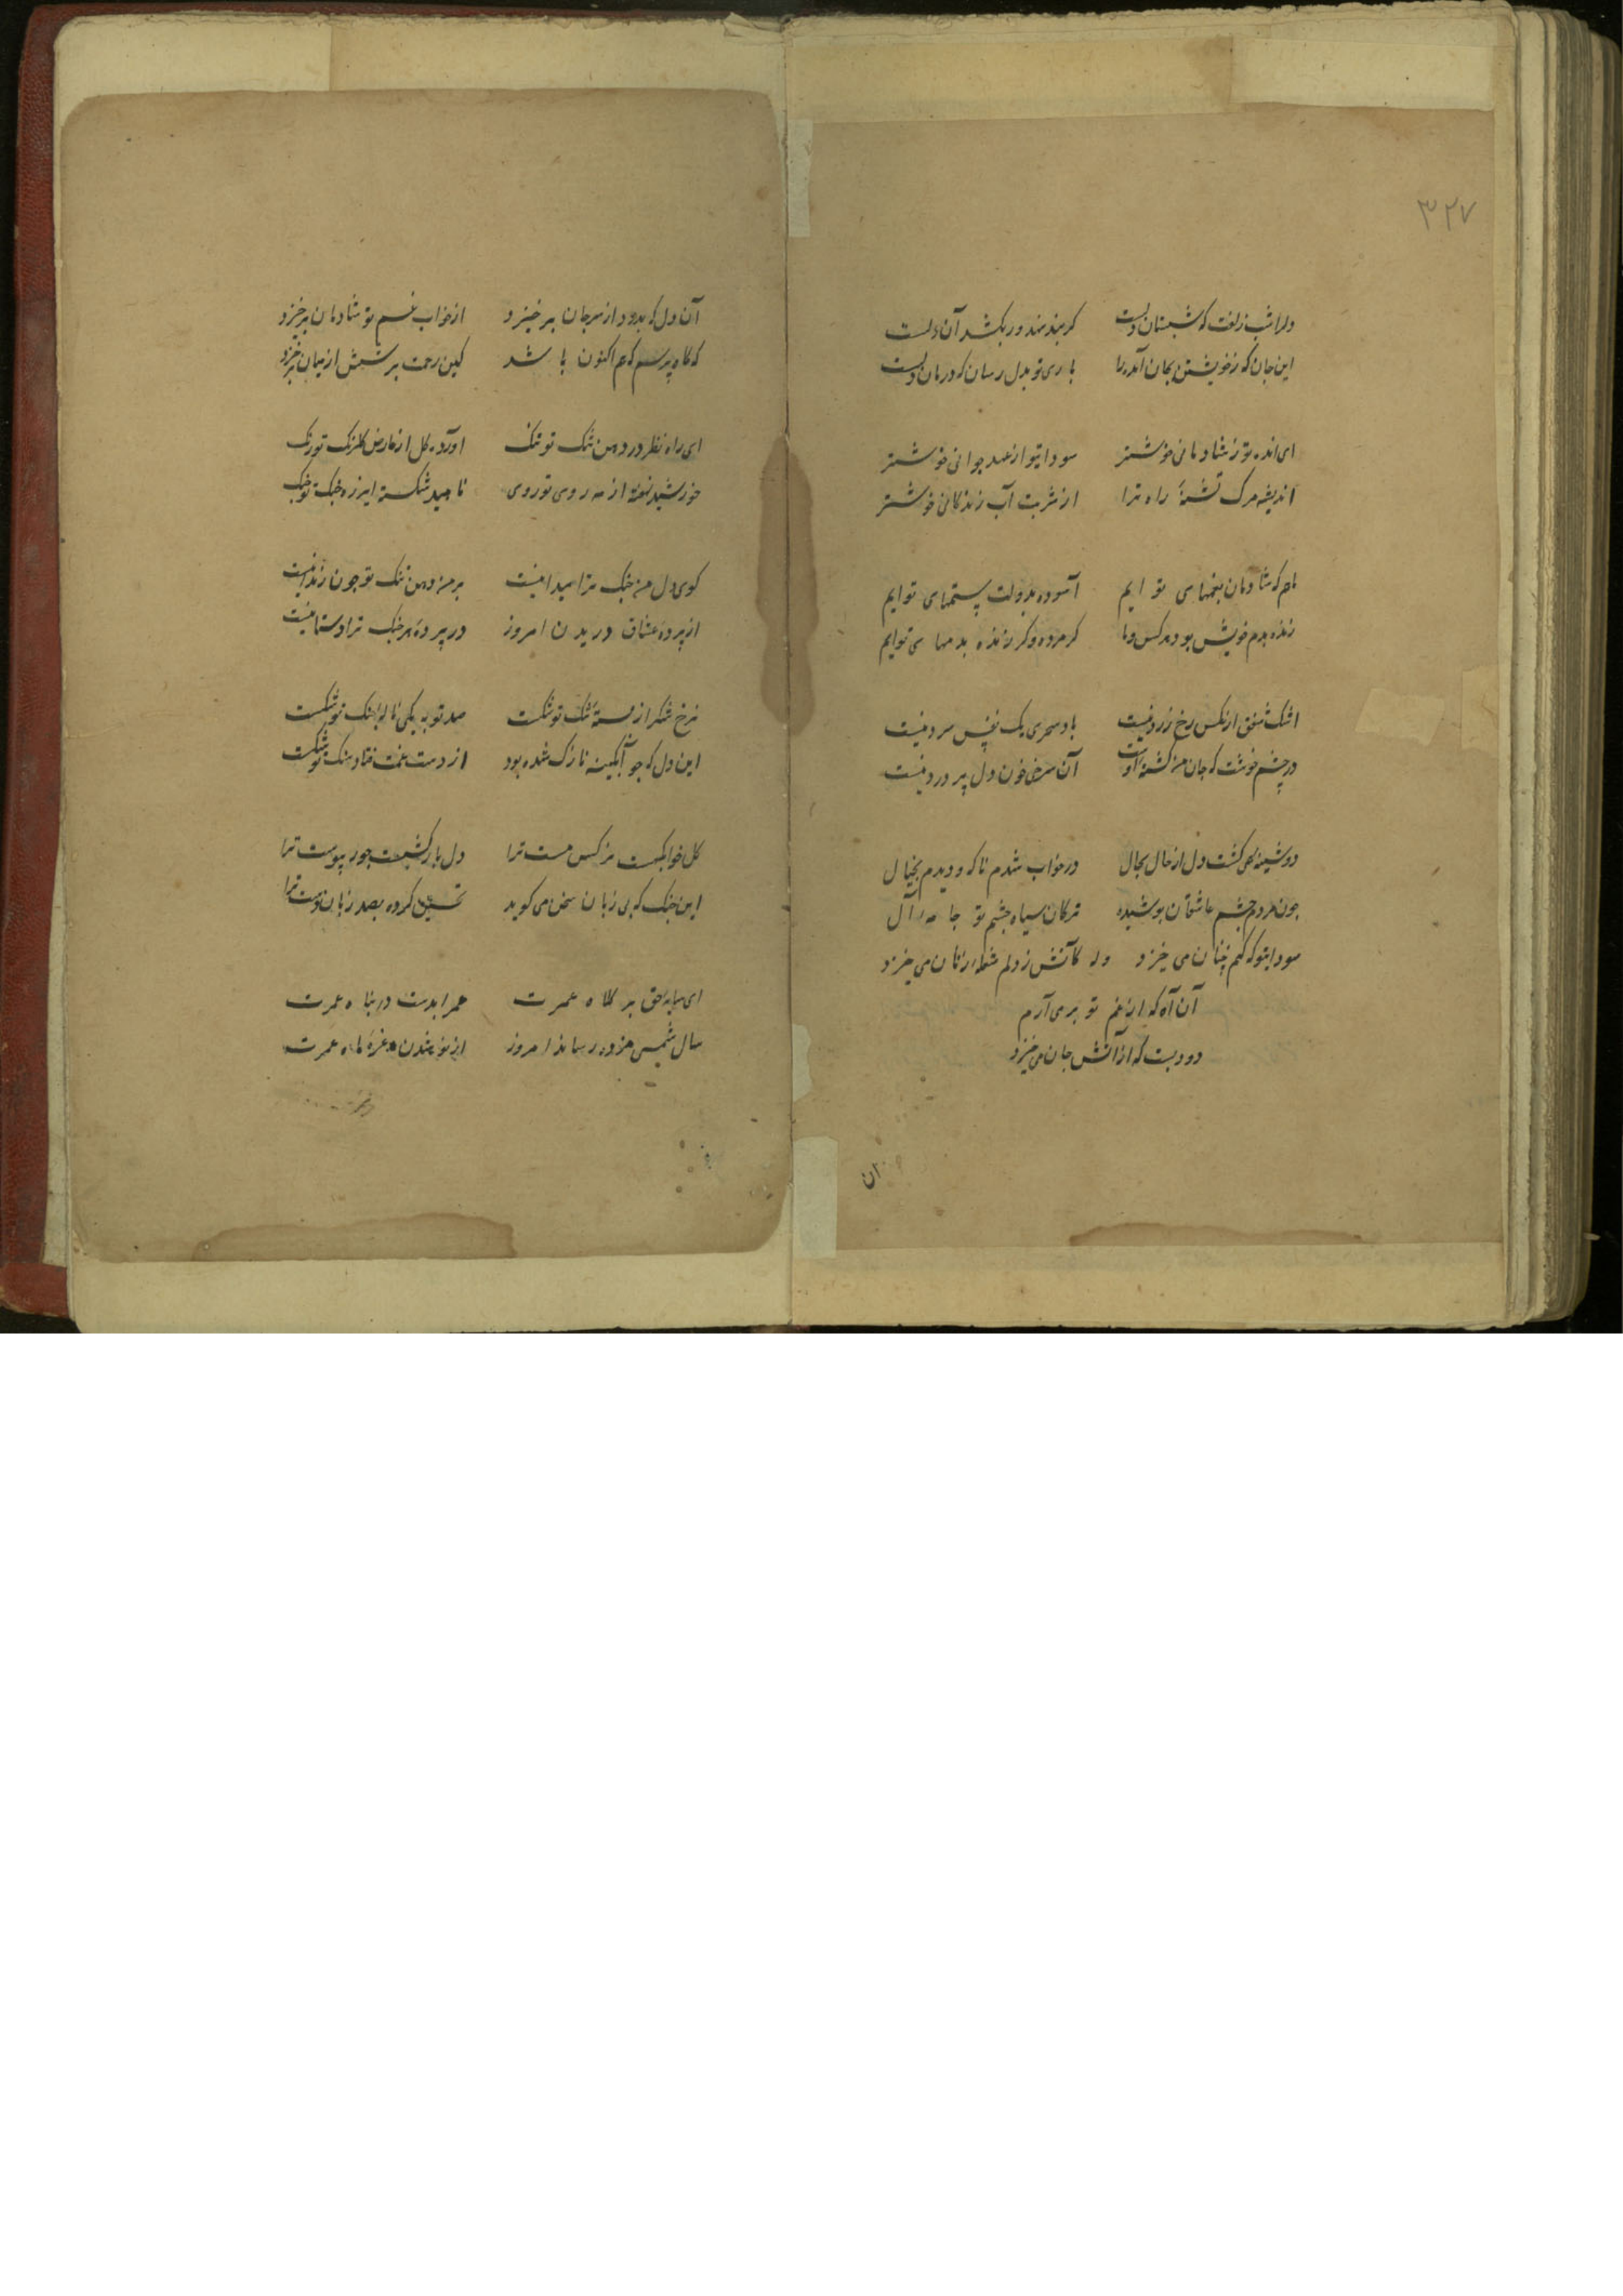 ٣٢٧
دلرا شب زلفت که شبستان دلست کر بند نهد ور بکشد آن دلست
این جان که ز خویشتن بجان آمد را باری تو بدل رسان که درمان دلست
ای انده تو ز شادمانی خوشتر سودای تو از عهد جوانی خوشتر
اندیشه مرک تشنهٔ راه ترا از شربت آب زندکانی خوشتر
مایم که شادمان بغمهای تو ایم آسوده بدولت ستمهای توایم
زنده بدم خویش بود هر کس و ما کر مرده و کر زنده بدمهای توایم
اشک شفق از عکس رخ زرد منیست باد سحری یک نفس سرد منیست
در چشم خوشت که جان من کشتهٔ اوست آن سرخی خون دل پر درد منیست
دوشینه همی کشت دل از حال بحال در خواب شدم ناکه و دیدم بخیال
چون مردم چشم عاشقان پوشیده ترکان سیاه چشم تو جامه آل
سودای تو کم چنان می خیزد وله کآتش ز دلم شعله زنان می خیزد
آن آه که از غم تو برمی آرم
دودیست که از آتش جان می خیزد
ان
آن دل که بدرد از سر جان برخیزد از خواب غم تو شادمان برخیزد
که کاه پرسم که عم اکنون باشد کین زحمت پرسش از میان برخیزد
ای راه نظر در دهن تنک تو تنک آورده کل از عارض کلرنک تو رنک
خورشید نهفته از مه روی تو روی ناهید شکسته از ره چنک تو چنک
کوی دل من چنک ترا میدانیست بر من دهن تنک تو چون زندانیست
از پردهٔ عشاق دریدن امروز در پردهٔ هر چنک ترا دستانیست
نرخ شکر از پستهٔ تنک تو شکست صد توبه بیکی نالهٔ چنک تو شکست
این دل که چو آبکینه نازک شده بود از دست غمت فتاد و سنک تو شکست
کل خواب کهست نرکس مست ترا دل بار کشیست جور پیوست ترا
این چنک که بی زبان سخن می کوید تحسین کرده بصد زبان دست ترا
ای سایهٔ حق بر کلاه عمرت عمر ابدست در پناه عمرت
سال شمسی مژده رسانذ امروز از نو شدن غرهٔ ماه عمرت